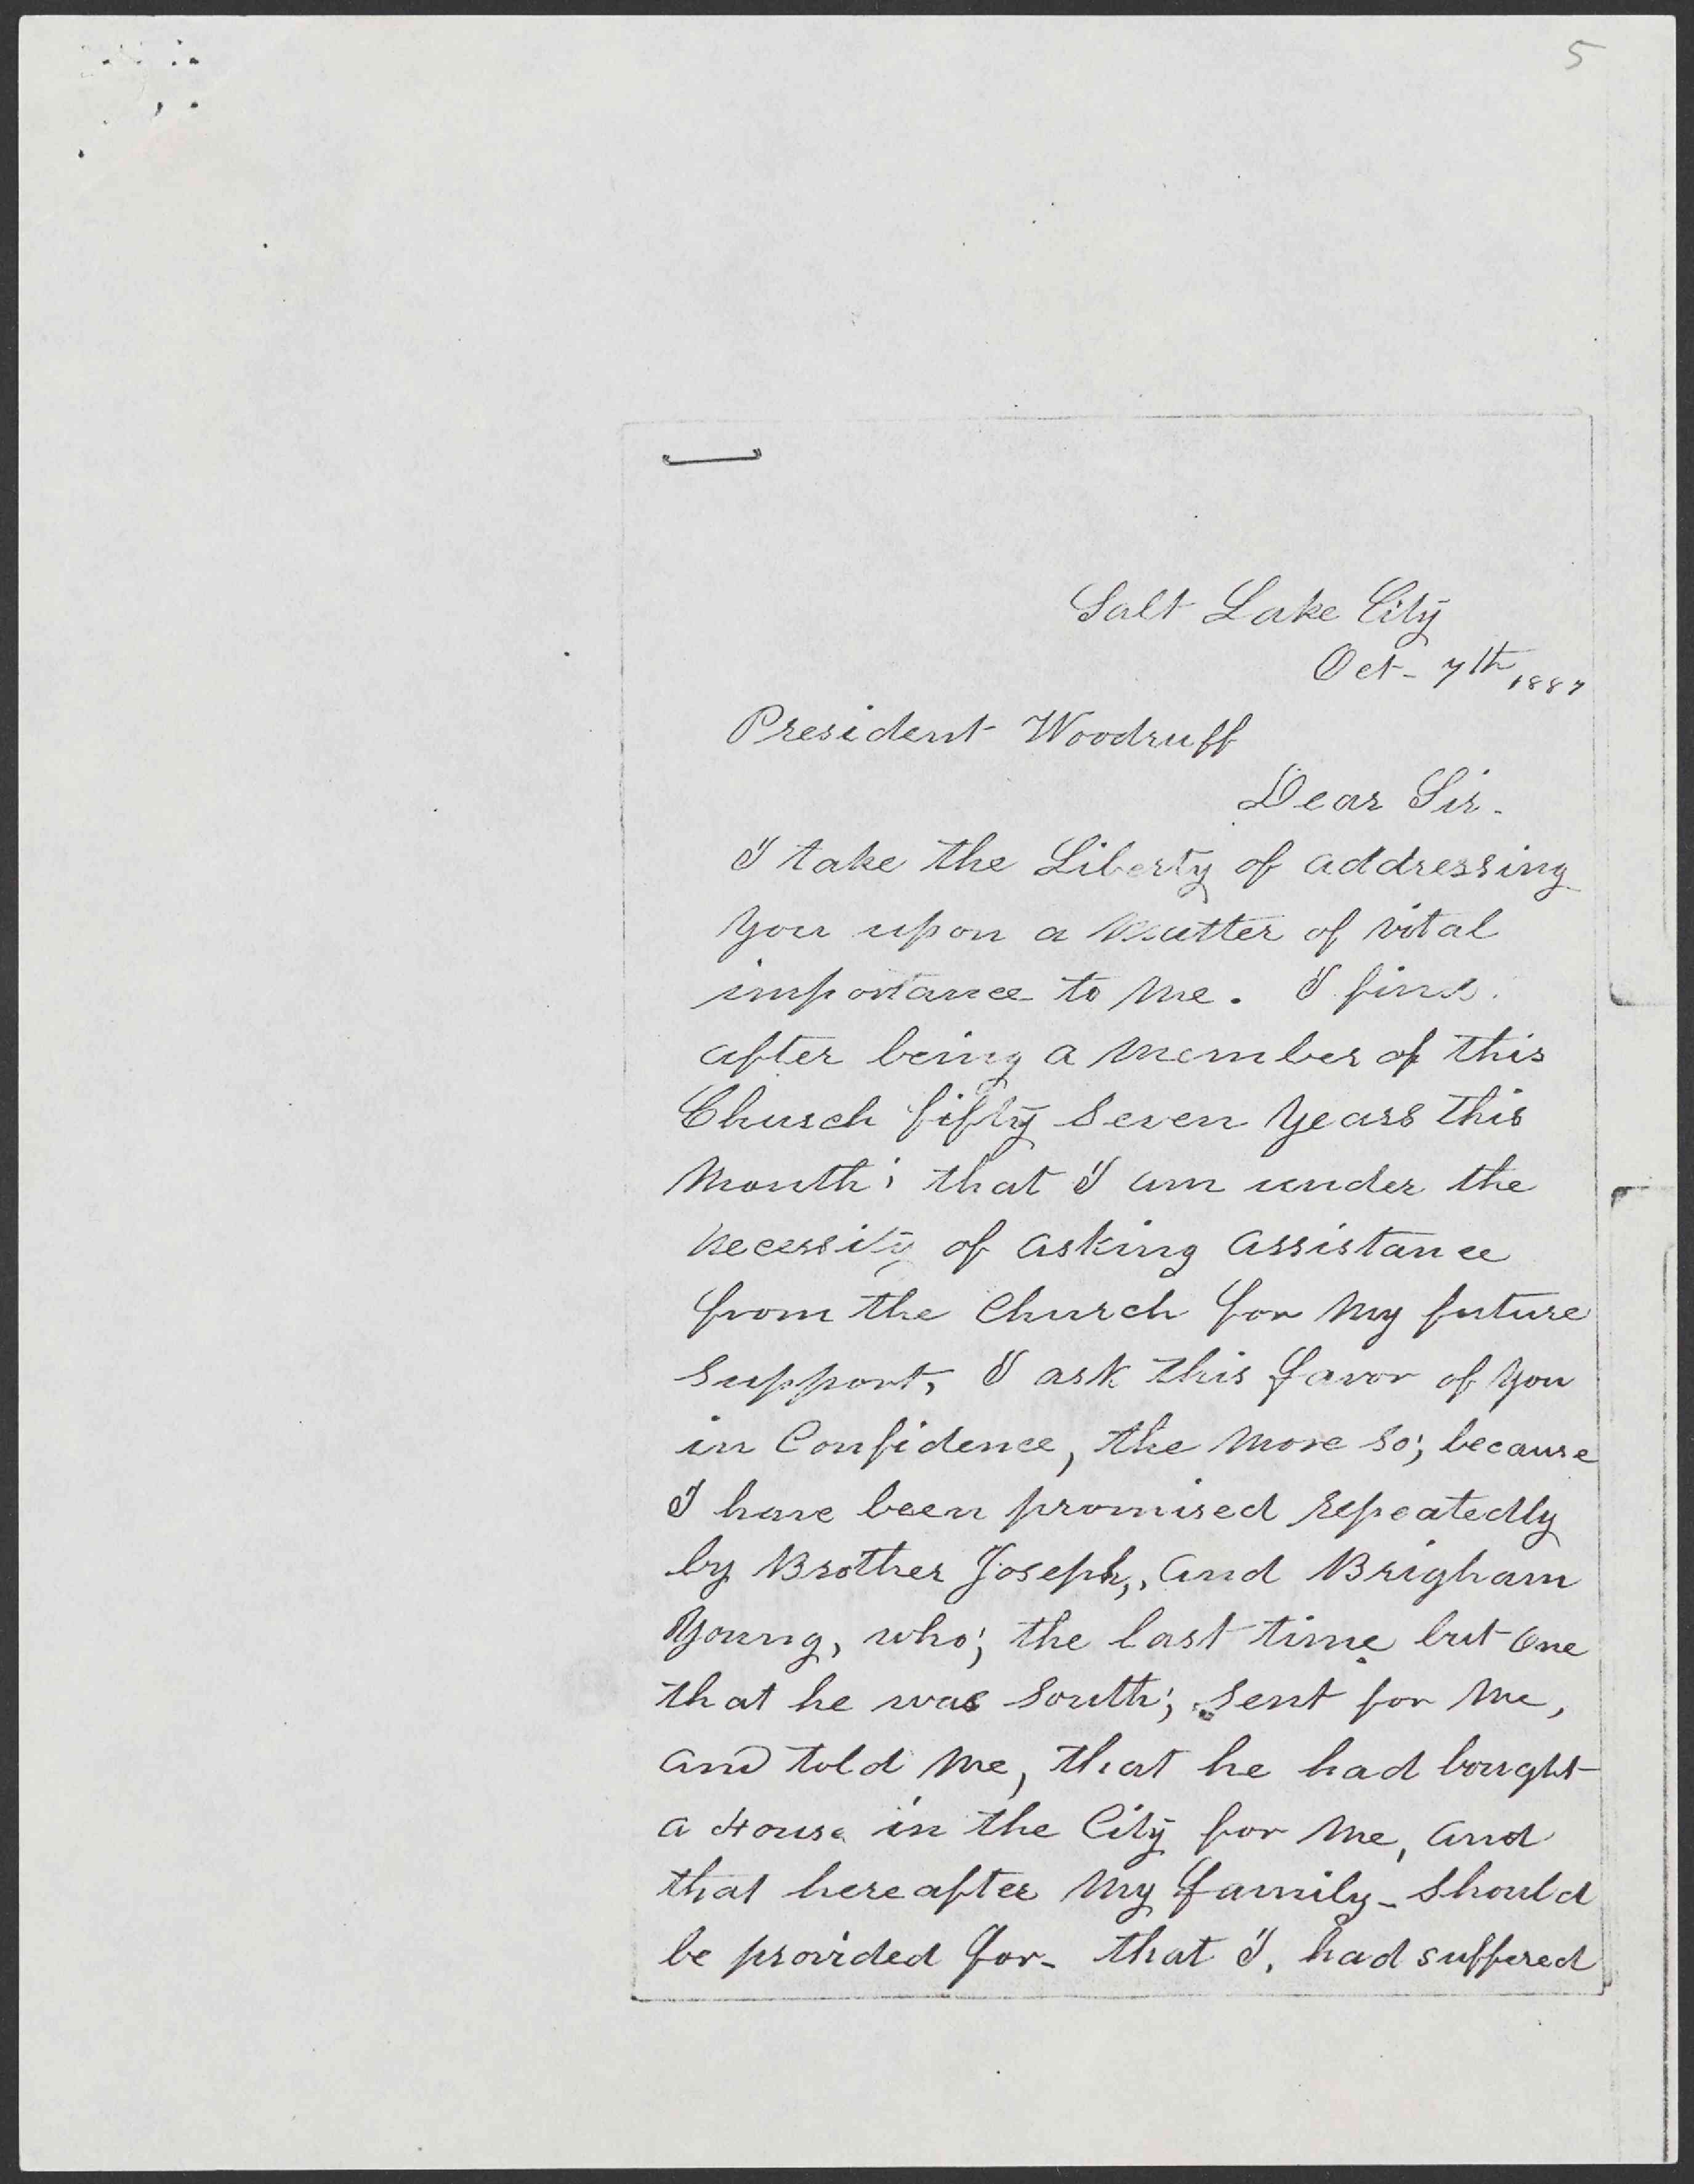 5
Salt Lake City
Oct - 7th 1887
President Woodruff
Dear Sir -
I take the Liberty of addressing
you upon a Matter of vital
importance to Me. I find.
after being a Member of this
Church fifty Seven Years this
Month; that I am under the
Necessity of Asking Assistance
from the Church for My future
Support, I ask this favor of You
in Confidence, the More so; because
I have been promised repeatedly
by Brother Joseph,, and Brigham
Young, who; the last time but One
that he was South; sent for Me,
and told Me, that he had bought
a House in the City for Me, and
that hereafter My family - Should
be provided for - that I, had suffered